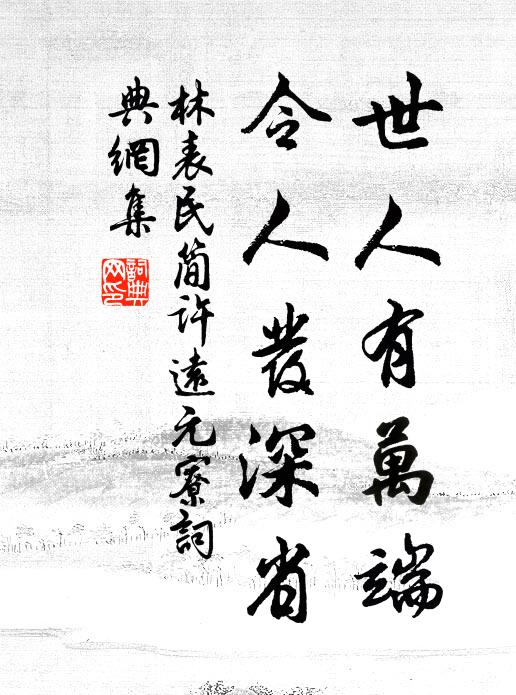 世人有萬端
令人發深省
林表民簡許遠元寮詞
典網集
詞典
网印